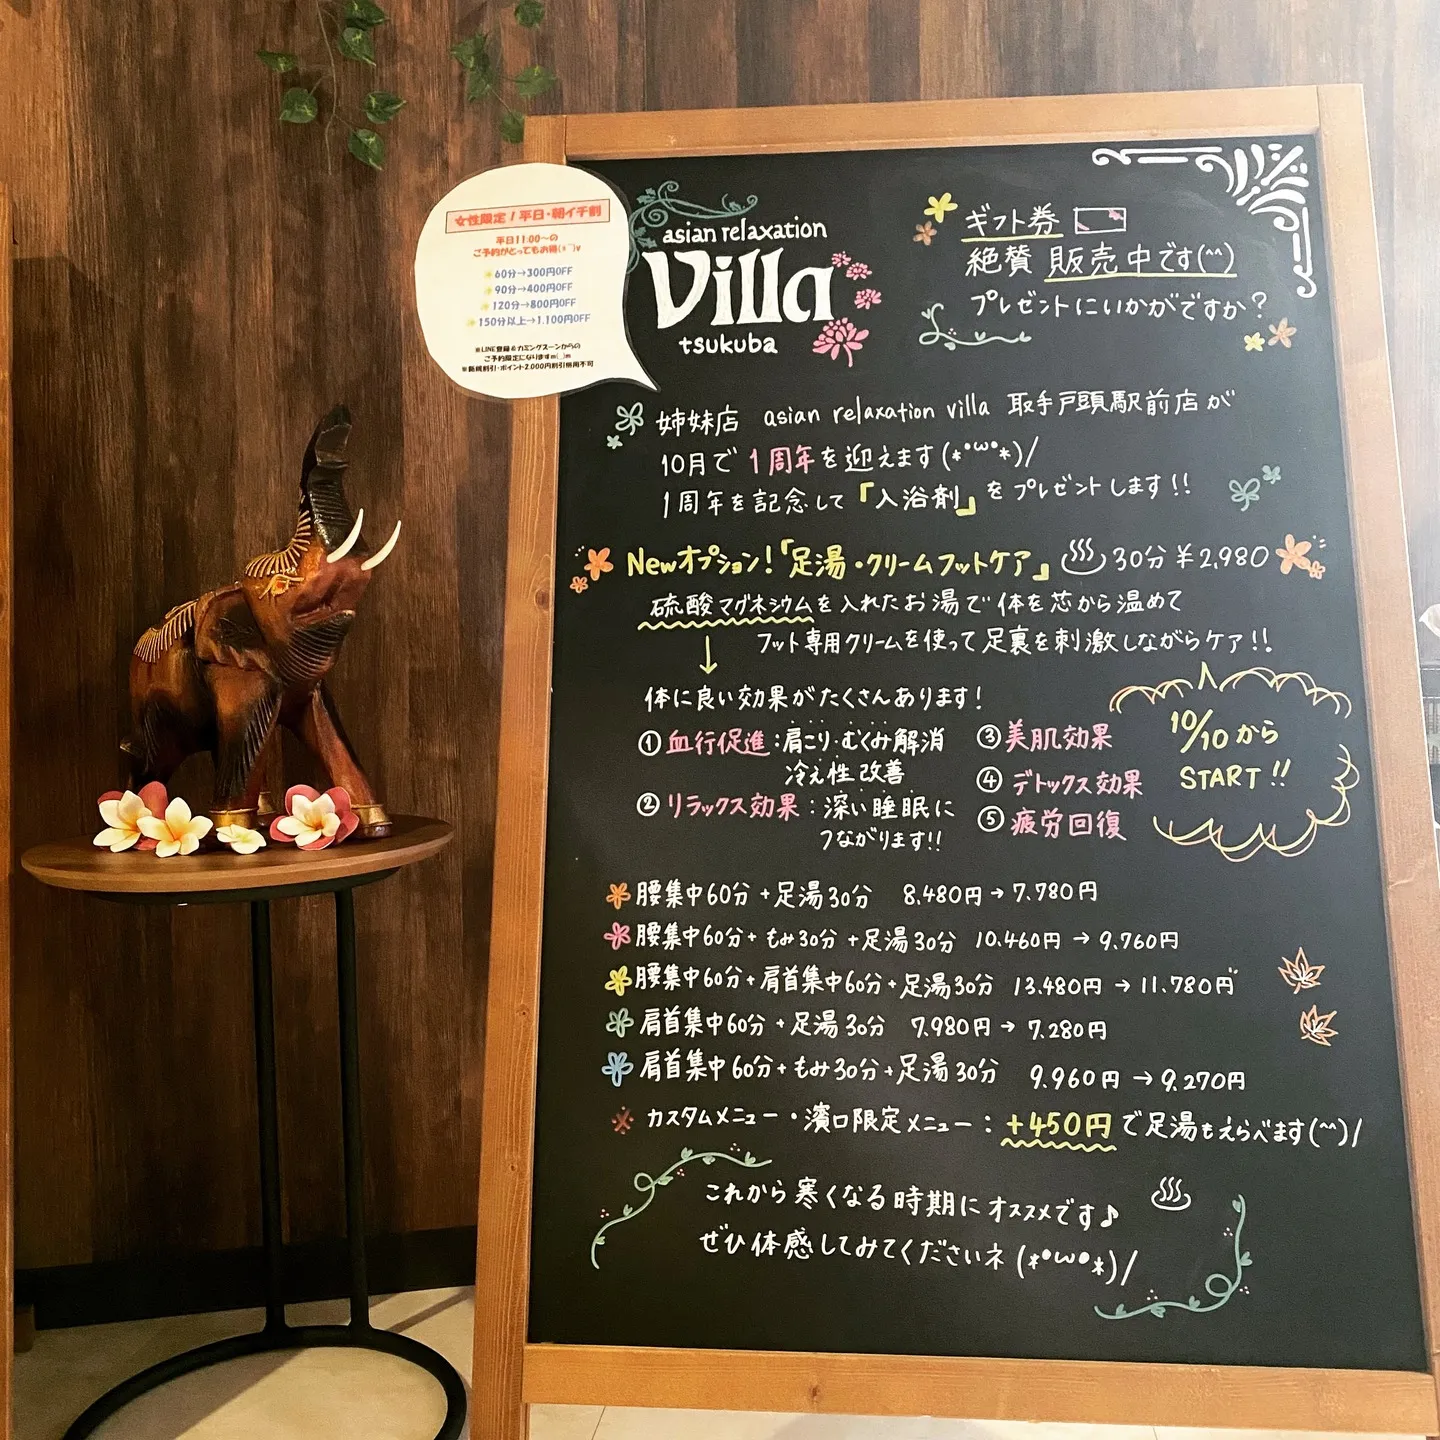 女性限定！平日・朝イチ割
平日11:00～の
ご予約がとってもお得(*^^)v
60分→300円OFF
90分→400円OFF
120分→800円OFF
150分以上→1,100円OFF
※LINE登録＆カミングスーンからの
ご予約限定になりますm(_)m
※新規割引・ポイント2,000円割引併用不可
asian relaxation
Villa
tsukuba
ギフト券
絶賛 販売中です(^^)
プレゼントにいかがですか？
姉妹店 asian relaxation villa 取手戸頭駅前店が
10月で1周年を迎えます(*•ω•*)/
1周年を記念して『入浴剤』をプレゼントします!!
Newオプション！『足湯・クリームフットケア』 30分 ￥2,980
硫酸マグネシウムを入れたお湯で体を芯から温めて
↓ フット専用クリームを使って足裏を刺激しながらケア!!
体に良い効果がたくさんあります!
① 血行促進：肩こり・むくみ解消
冷え性改善
② リラックス効果：深い睡眠に
つながります!!
③ 美肌効果
④ デトックス効果
⑤ 疲労回復
10/10から
START!!
腰集中60分+足湯30分 8,480円→7,780円
腰集中60分+もみ30分+足湯30分 10,460円→9,760円
腰集中60分+肩首集中60分+足湯30分 13,480円→11,780円
肩首集中60分+足湯30分 7,980円→7,280円
肩首集中60分+もみ30分+足湯30分 9,960円→9,270円
※ カスタムメニュー・濱口限定メニュー：+450円で足湯もえらべます(^^)/
これから寒くなる時期にオススメです♪
ぜひ体感してみてくださいネ(*•ω•*)/